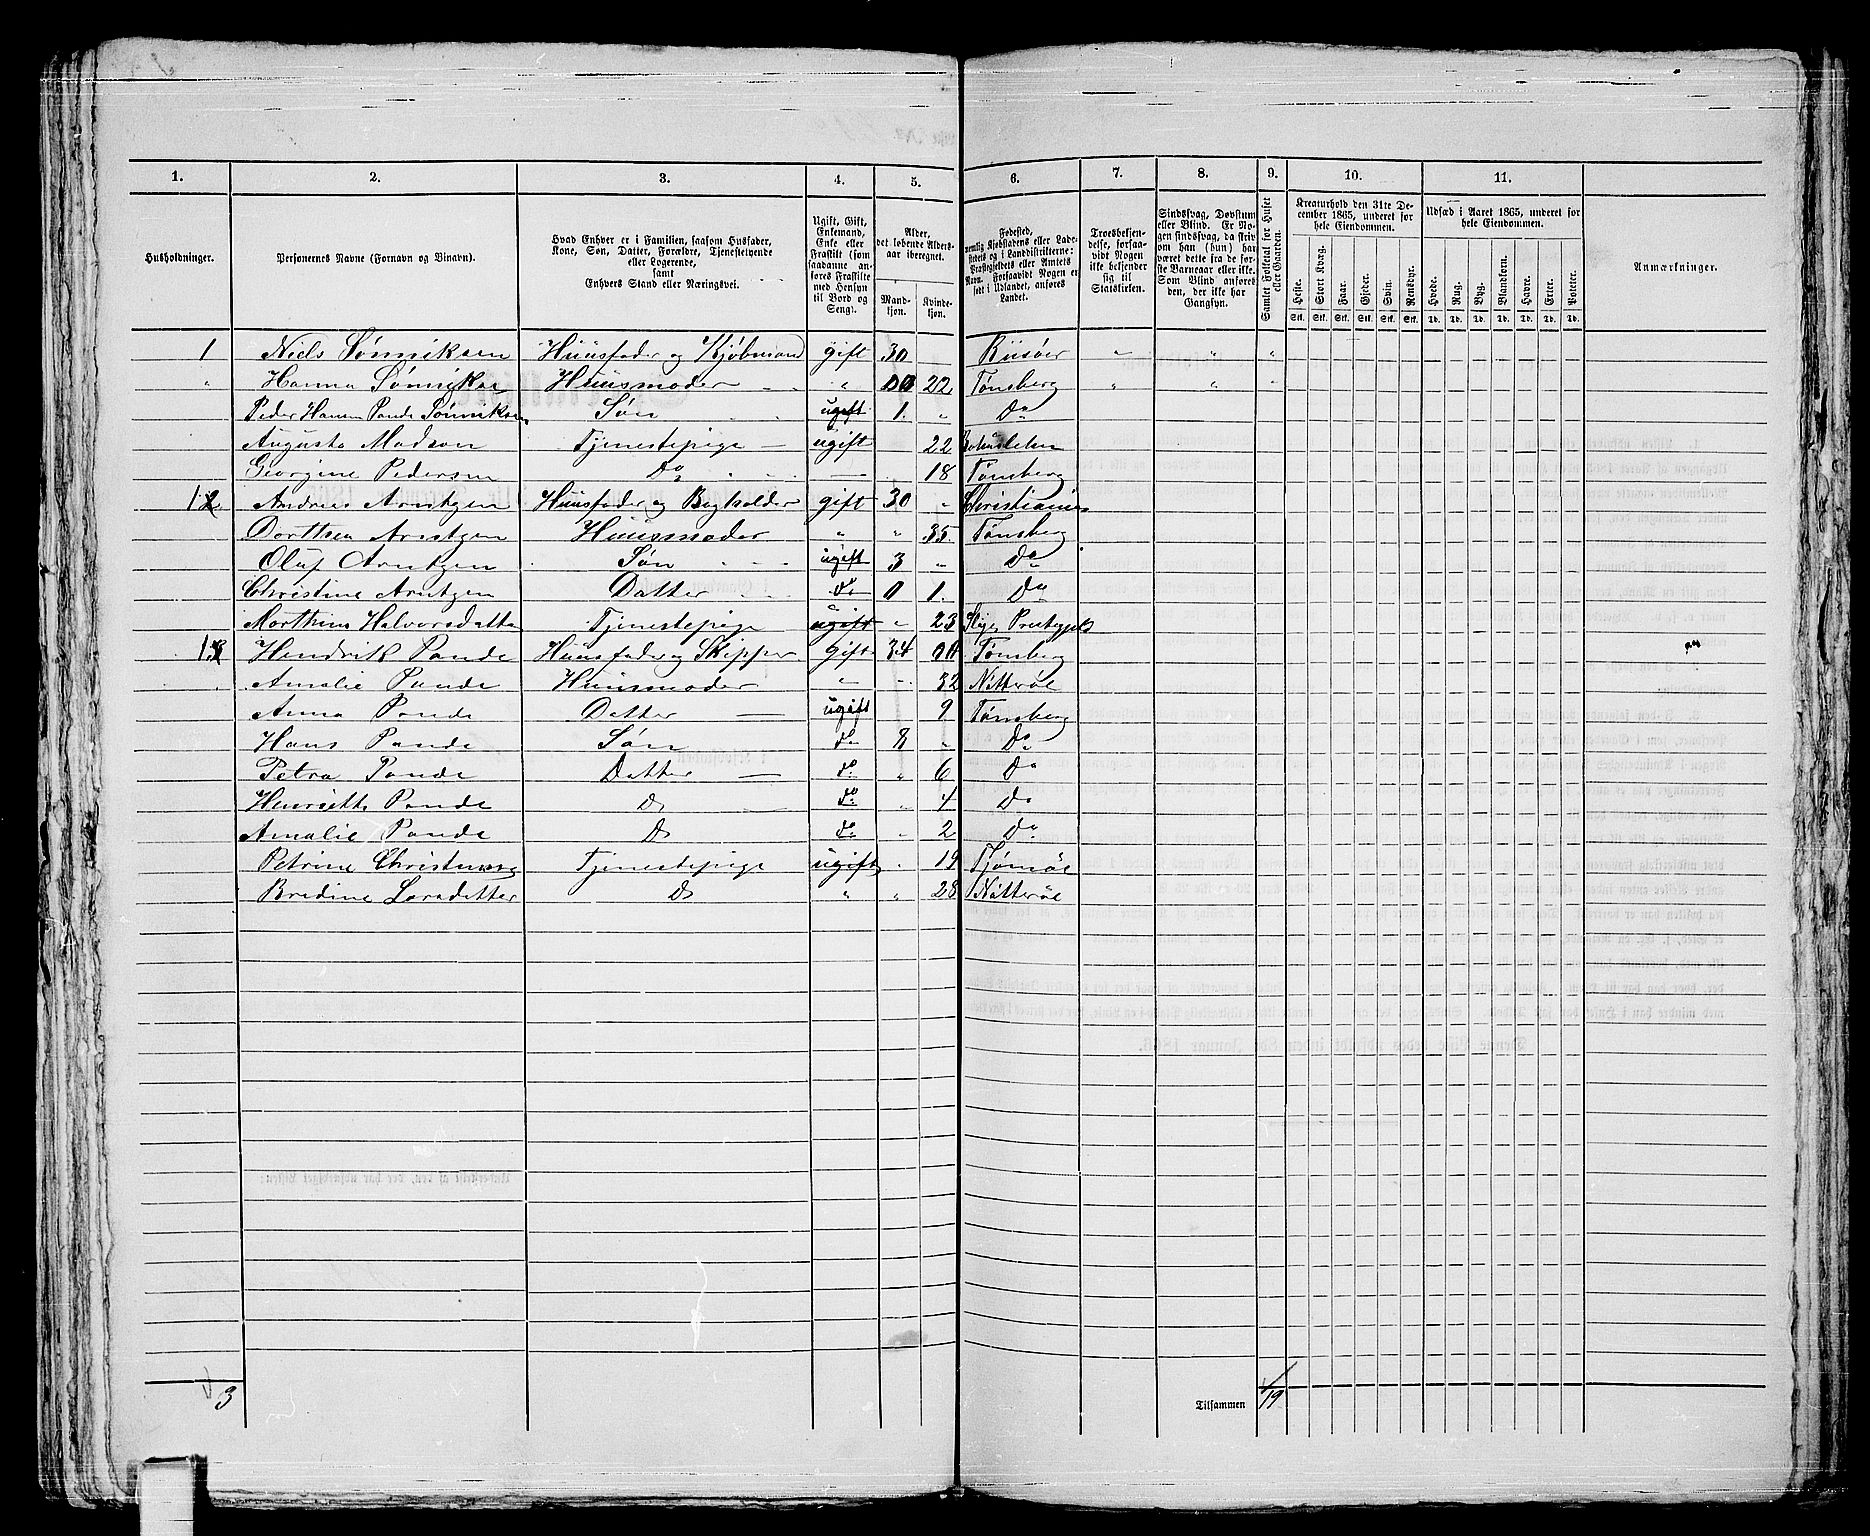 1. 2. 3. 4. 5. 6. 7. 8. 9. 10. 11.
Husholdninger. Personernes Navne (Fornavn og Vinavn). Hvad Enhver er i Familien, saasom Husfader, Kone, Søn, Datter, Forældre, Tjenestetyende eller Logerende, samt Enhvers Stand eller Næringsvei. Ugift, Gift, Enkemand, Enke eller Fraskilt (som saadanne anføres Fraskilte med Hensyn til Bord og Seng). Alder, det løbende Alders-aar iberegnet. Mand-kjøn. Kvinde-kjøn. Fødested, nemlig Kjøbstadens eller Ladestedets og i Landdistrikterne: Præstegjeldets eller Amtets Navn. Forsaavidt Nogen er født i Udlandet, anføres Landet. Troesbekjendelse, forsaavidt Nogen ikke bekjender sig til Statskirken. Sindssvag, Døvstum eller Blind. Er Nogen sindssvag, da skrives om han (hun) har været dette fra de første Barneaar eller ikke. Som Blind anføres den, der ikke har Gangsyn. Samlet Folketal for Huset eller Gaarden. Kreaturhold den 31te December 1865, underet for hele Eiendommen. Udsæd i Aaret 1865, underet for hele Eiendommen. Anmærkninger.
Heste. Stort Kvæg. Faar. Gjeder. Svin. Rensdyr. Hvede. Rug. Byg. Blandkorn. Havre. Erter. Poteter.
Stk. Stk. Stk. Stk. Stk. Stk. Td. Td. Td. Td. Td. Td. Td.
1 Niels Sønniksen Huusfader og Kjøbmand gift 30 Riisøer " " "
" Hanna Sønniksen Huusmoder " 22 Tønsberg " " "
Peder Hansen Pande Sønniksen Søn ugift 1. " Do
Augusta Madsen Tjenestepige ugift 22 Bohuslehn
Georgine Pedersen Do 18 Tønsberg
2 Andreas Arntzen Huusfader og Bogholder gift 30 " Christiania
Dorthea Arntzen Huusmoder " " 35. Tønsberg
Oluf Arntzen Søn ugift 3 " Do
Christine Arntzen Datter do 0 1. Do
Marthine Halvorsdatter Tjenestepige ugift " 23 Præstegjeld
3 Hendrik Pande Huusfader og Skipper gift 34 Tønsberg
Amalie Pande Huusmoder " 32 Nøtterøe
Anna Pande Datter ugift 9 Tønsberg
Hans Pande Søn do 8 " Do
Petra Pande Datter do " 6 Do
Henriette Pande Do do " 4 Do
Amalie Pande Do do " 2 Do
Petrine Christensen Tjenestepige ugift " 19 Tjømøe
Bredine Larsdatter Do " " 28 Nøtterøe
3 Tilsammen 19